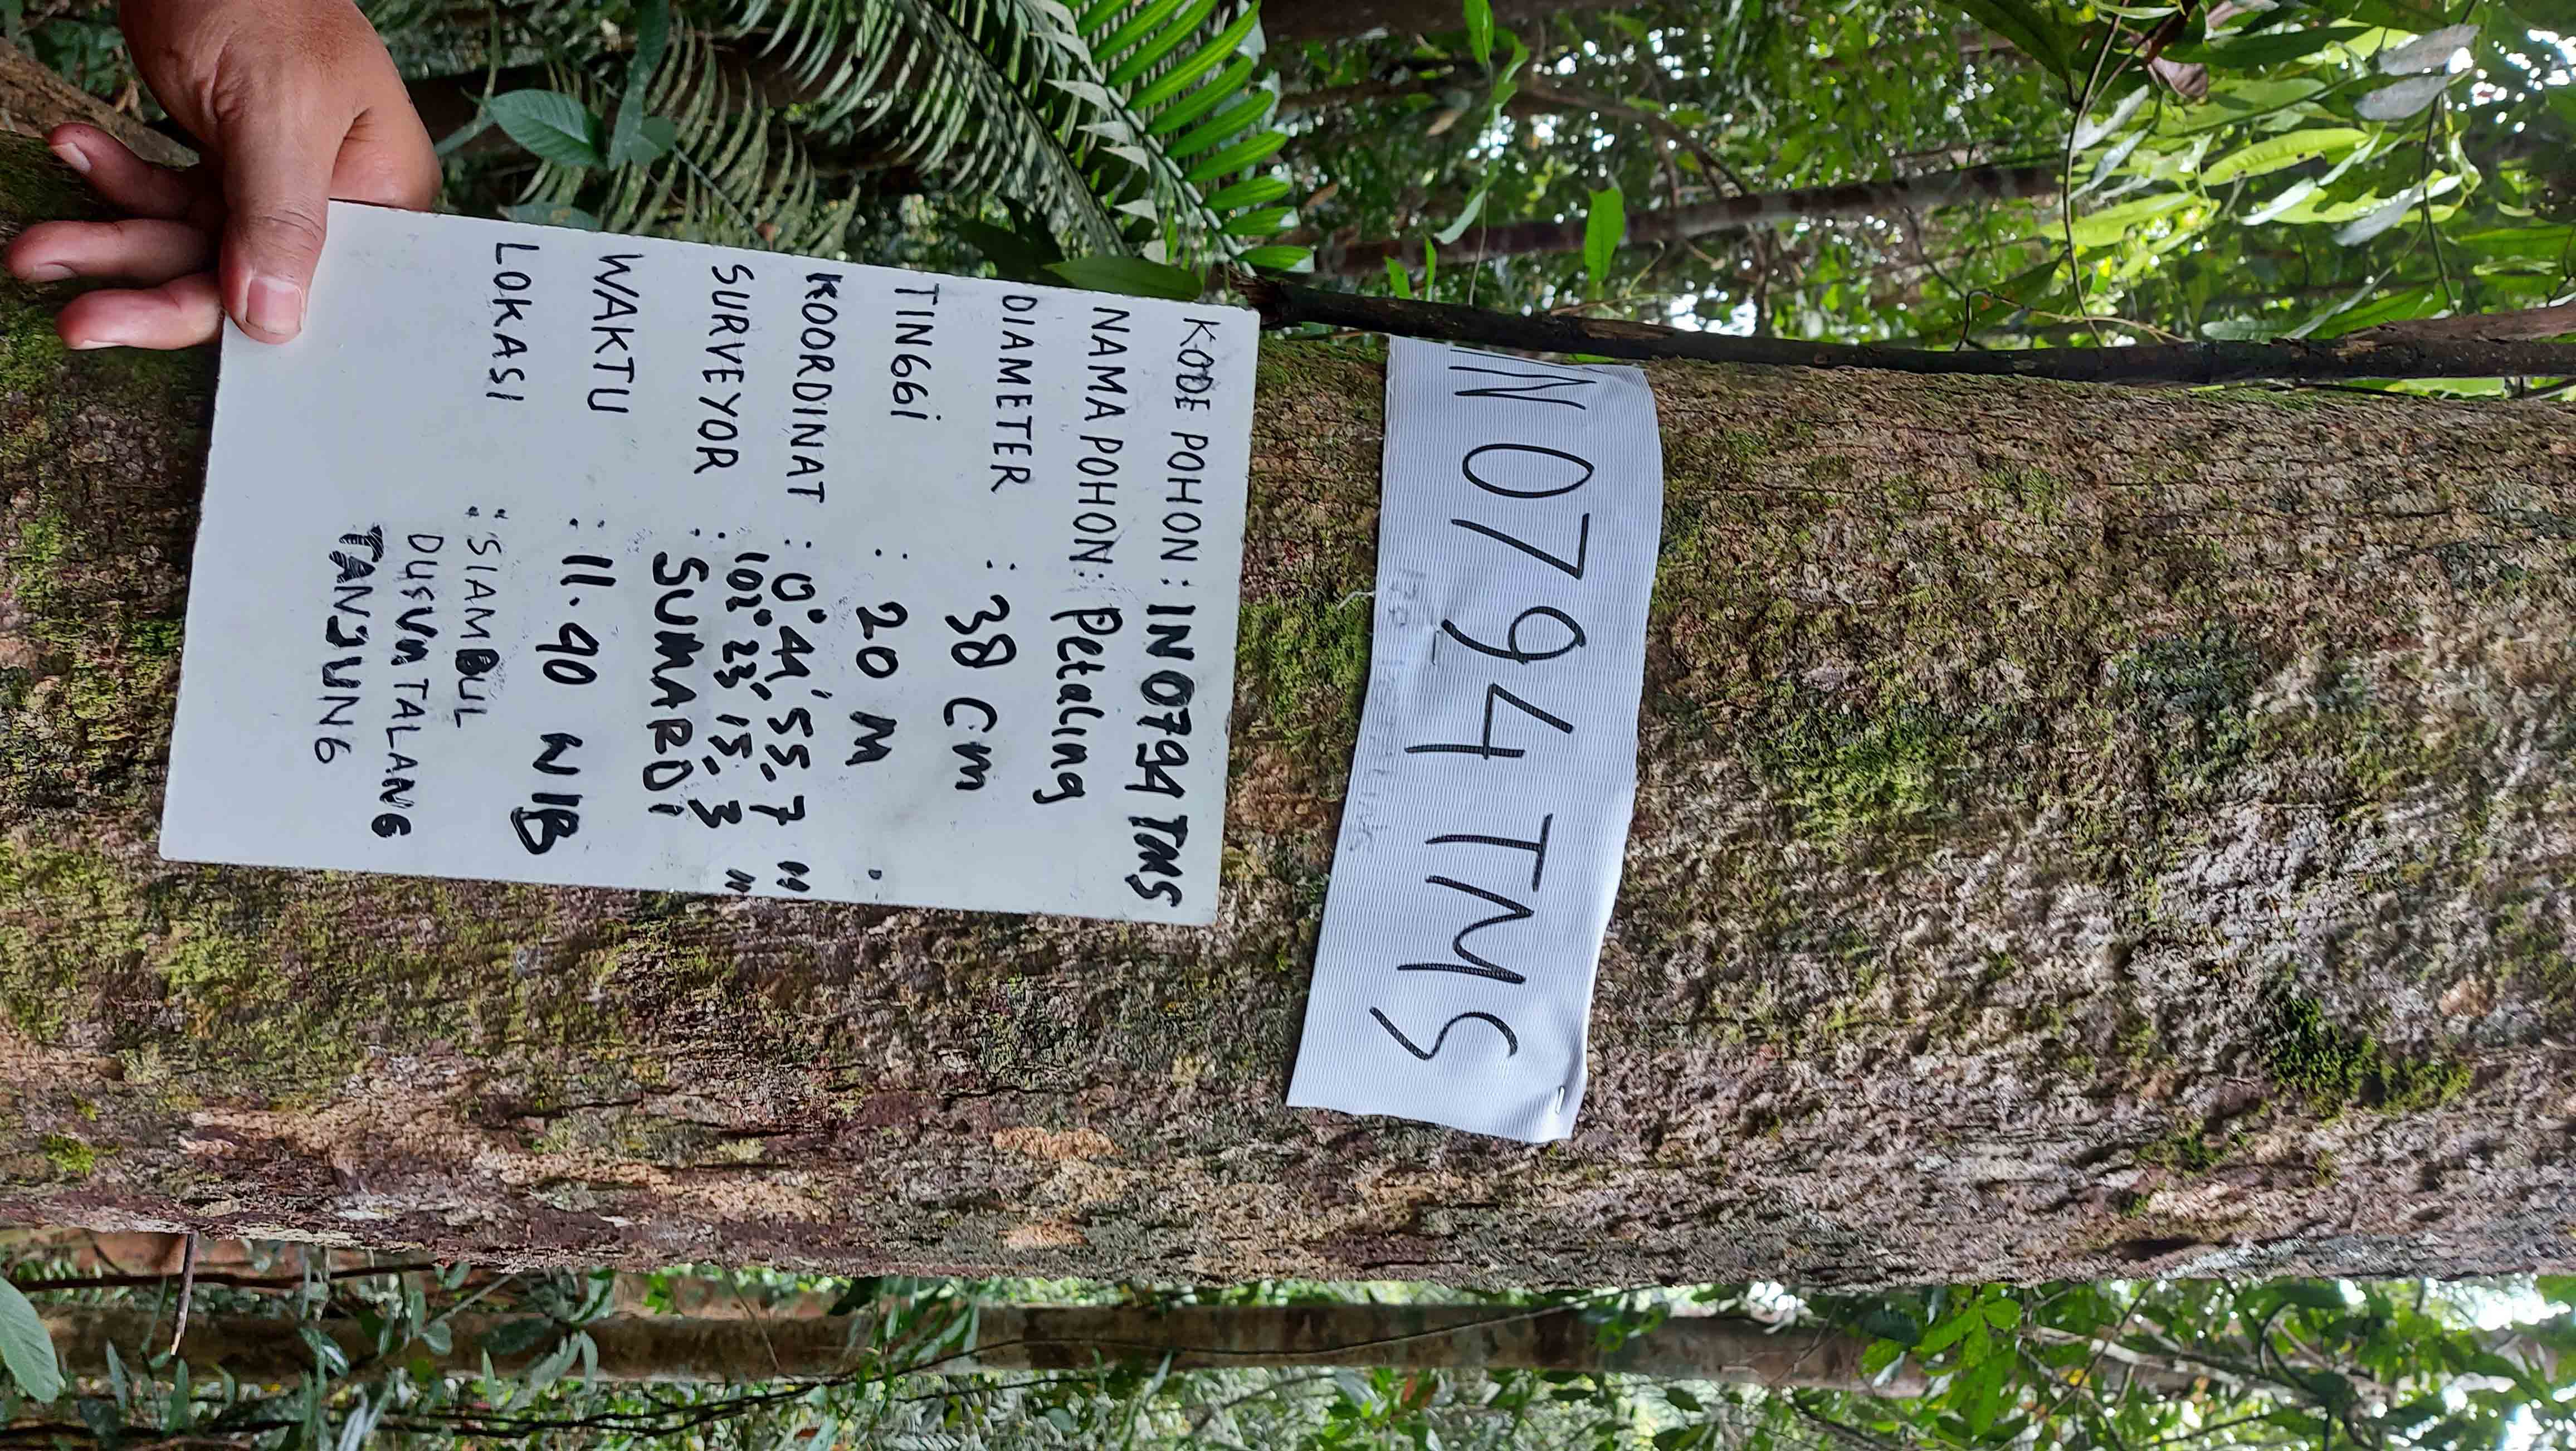 IN 0794 TMS
KODE POHON : IN 0794 TMS
NAMA POHON : Petaling
DIAMETER : 38 cm
TINGGi : 20 M
KOORDINAT : 0° 44' 55,7 "
102° 23' 15,3 "
SURVEYOR : SUMARDi
WAKTU : 11.40 WIB
LOKASI : SIAMBUL
DUSUN TALANG
TANJUNG